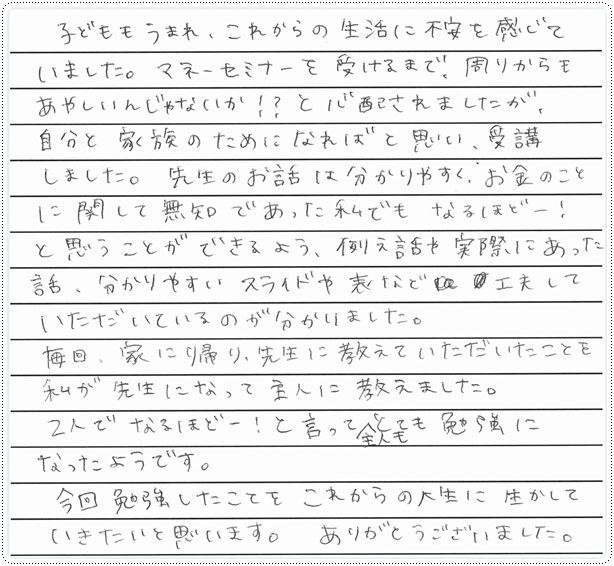 子どももうまれ、これからの生活に不安を感じて
いました。マネーセミナーを受けるまで、周りからも
あやしいんじゃないか!?と心配されましたが、
自分と家族のためになればと思い、受講
しました。先生のお話は分かりやすく、お金のこと
に関して無知であった私でもなるほどー!
と思うことができるよう、例え話や実際にあった
話、分かりやすいスライドや表など工夫して
いただいているのが分かりました。
毎回、家に帰り、先生に教えていただいたことを
私が先生になって主人に教えました。
2人でなるほどー!と言って主人もとても勉強に
なったようです。
今回勉強したことをこれからの人生に生かして
いきたいと思います。ありがとうございました。